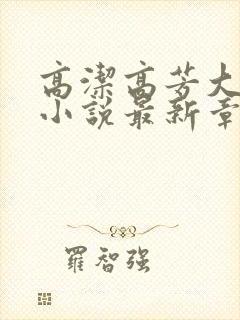 高潔高芳大
小說最新章
羅智强